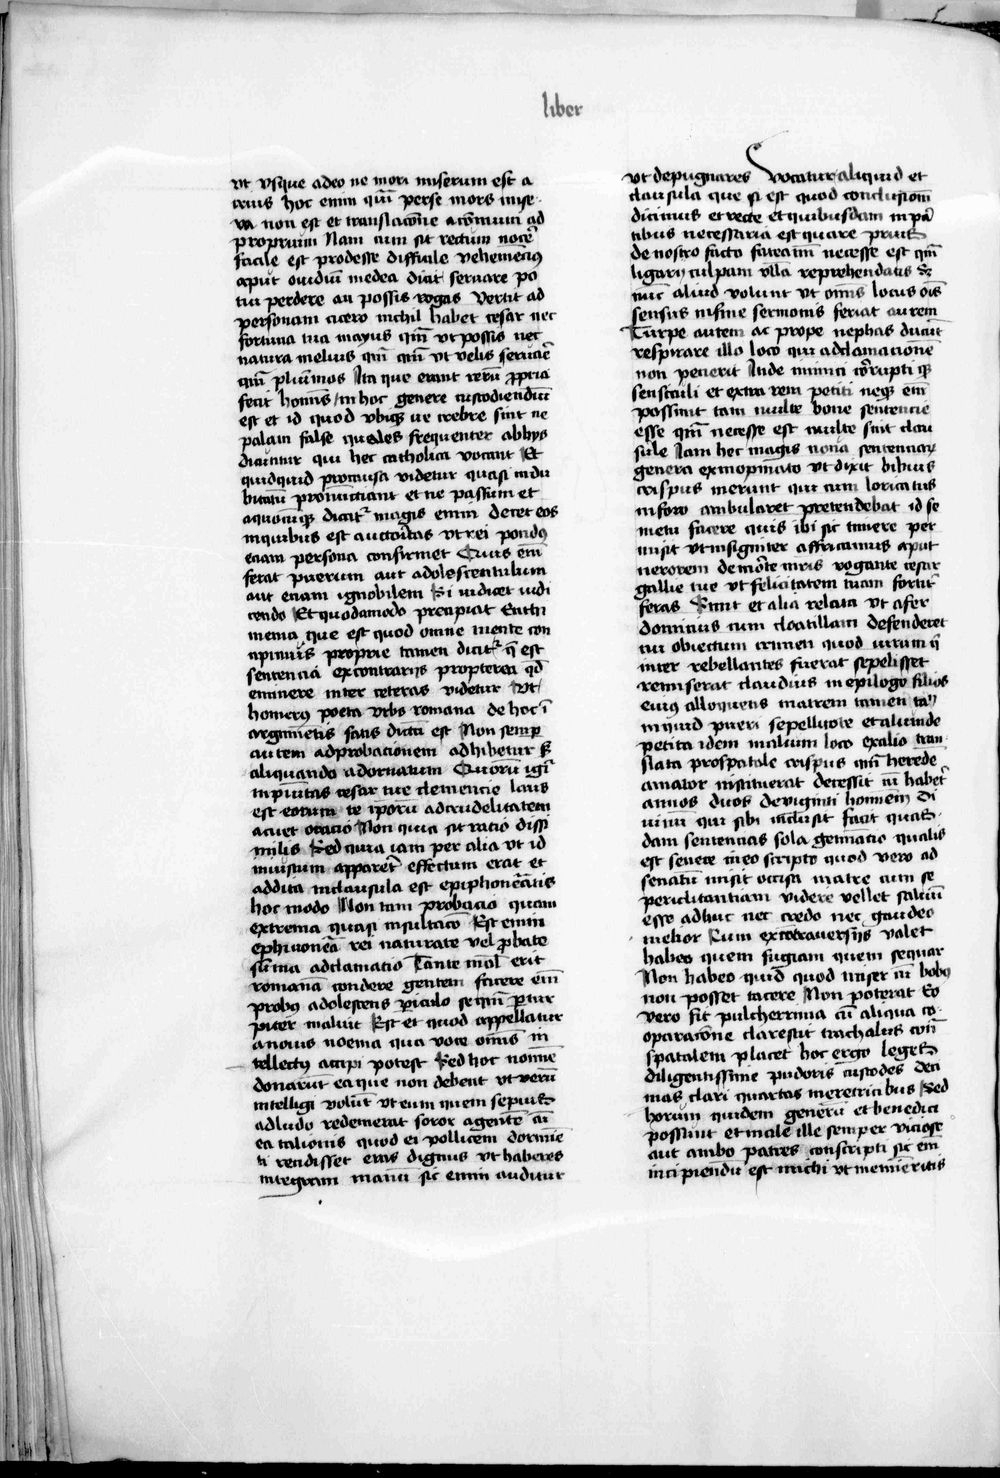 liber
vt vsque adeo ne mori miserum est a
crius hoc enim qm̄ perse mors mise
ra non est et translacōne a cōmuni ad
proprium Nam cum sit rectum nocē
facile est prodesse difficile vehemēciꝰ
aput ouidiū medea dicit seruare po
tui perdere an possis rogas Vertit ad
personam cicero nichil habet cesar nec
fortuna tua mayus qm̄ vt possis nec
natura melius qm̄ qm̄ vt velis seruarē
qm̄ plurimos Ita que erant rerū ꝓpria
fecit hominis in hoc genere custodiendū
est et id quod vbiqꝫ ne crebre sint ne
palam false quales frequenter abhys
dicuntur qui hec catholica vocant Et
quidquid pro causa videtur quasi indu
bitatū pronuncciant et ne passim et
aquoniqꝫ dicātʳ magis enim decet eos
inquibus est auctoritas vt rei pondꝰ
eciam persona confirmet Quis em̄
ferat puerum aut adolescentulum
aut eciam ignobilem Si iudicet indi
cendo Et quodamodo precipiat Enthi
mema que est quod omne mente con
cipimus proprie tamen dicitʳ q̄ est
sentencia excontrarijs propterea qd̄
eminere inter ceteras videtur Vt
homerꝰ poeta vrbs romana de hoc ī
argumētis satis dictū est Non semꝑ
autem adprobacionem adhibetur sꝫ
aliquando adornatum Quorū igiʳ
inpunitas cesar tue clemencie laus
est eorum te ipōrū adcrudelitatem
acuet oracio Non quia sit racio dissi
milis Sed quia iam per alia vt id
iniustum apparerꝫ effectum erat et
addita inclausula est epiphonēmatis
hoc modo Non tam probacio quam
extrema quasi insultacō Est enim
ephiuonēa rei naturate vel ꝓbate
sūma adclamacio Tante mōl erit
romanā condere gentem facere em̄
probꝰ adolescens ꝑiculo seqm̄ ꝑtur
piter maluit Est et quod appellatur
anouis noema qua vote om̄is in
tellectꝰ accipi potest Sed hoc nomine
donarūt ea que non debent vt verū
intelligi volūt vt eum quem sepius
adludo redemerat soror agentē cū
ea talionis quod ei pollicem dormiē
ti rendisset eras dignus vt haberes
integram manū sic enim auditur
vt depugnares Vocatur aliquid et
clausula que si est quod conclusionē
dicimus et recte et quibusdam in par
tibus necessaria est quare prius
de nostro facto faieamī necesse est qm̄
ligarij culpam vllā reprehendatis Sꝫ
nūc aliud volunt vt om̄is locus oīs
sensus infine sermonis feriat aurem
Turpe autem ac prope nephas ducūt
respirare illo loco qui adclamacionē
non pecierit Inde minuti cōrrupti qꝫ
sensiculi et extra rem petiti neqꝫ em̄
possunt tam multe bone sentencie
esse qm̄ necesse est multe sint clau
sule Iam hec magis noua sentenciarꝫ
genera exinopinato vt dixit bibius
crispus merunt qui cum loricatus
inforo ambularet pretendebat id se
metu facere quis ibi sic timere per
misit Vt insigniter affricanus aput
neronem de morte mris rogante cesar
gallie tue vt felicitatem tuam fortitʳ
feras Sunt et alia relata vt afer
domicius cum cloatillam defenderet
cui obiectum crimen quod uirum q̄
inter rebellantes fuerat sepelisset
remiserat claudius in epilogo filios
eiuꝰ alloquens matrem tamen ta
inquid pueri sepelluote et aliunde
petita idem malum loco exalio tran
slata prospatale crispus qm̄ herede
amator instituerat decessit cū haberʳ
annos duos deviginti hominem di
uinū qui sibi indulsit facit quas
dam sentencias sola geminacio qualis
est seuete in eo scripto quod vero ad
senatū misit occisa matre cum se
periclitantiam videre vellet saluū
esse adhuc nec credo nec gaudeo
melior Cum excōtrauersijs valet
habeo quem fugiam quem sequar
Non habeo quid quod miser cū bobꝰ
non posset tacere Non poterat Eo
vero fit pulcherrima cū aliqua co
oparacōne clarescit trachalus con̄
spatalem placet hoc ergo leges
diligentissime pudoris custodes deci
mas clari quartas meretricibus Sed
horum quidem generū et benedici
possunt et male ille semper viciose
aut ambo patres conscripti sic em̄
incipiendū est michi vt memineritis